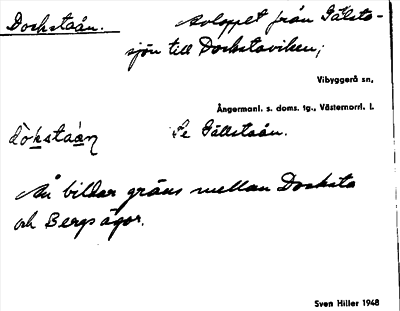 Dockstaån. Avloppet från Gälsta-
sjön till Dockstaviken;
Vibyggerå sn,
Ångermanl. s. doms. tg., Västernorrl. l.
dòkstaán Se Gällstaån.
Ån bildar gräns mellan Docksta
och Bergs ägor.
Sven Hiller 1948